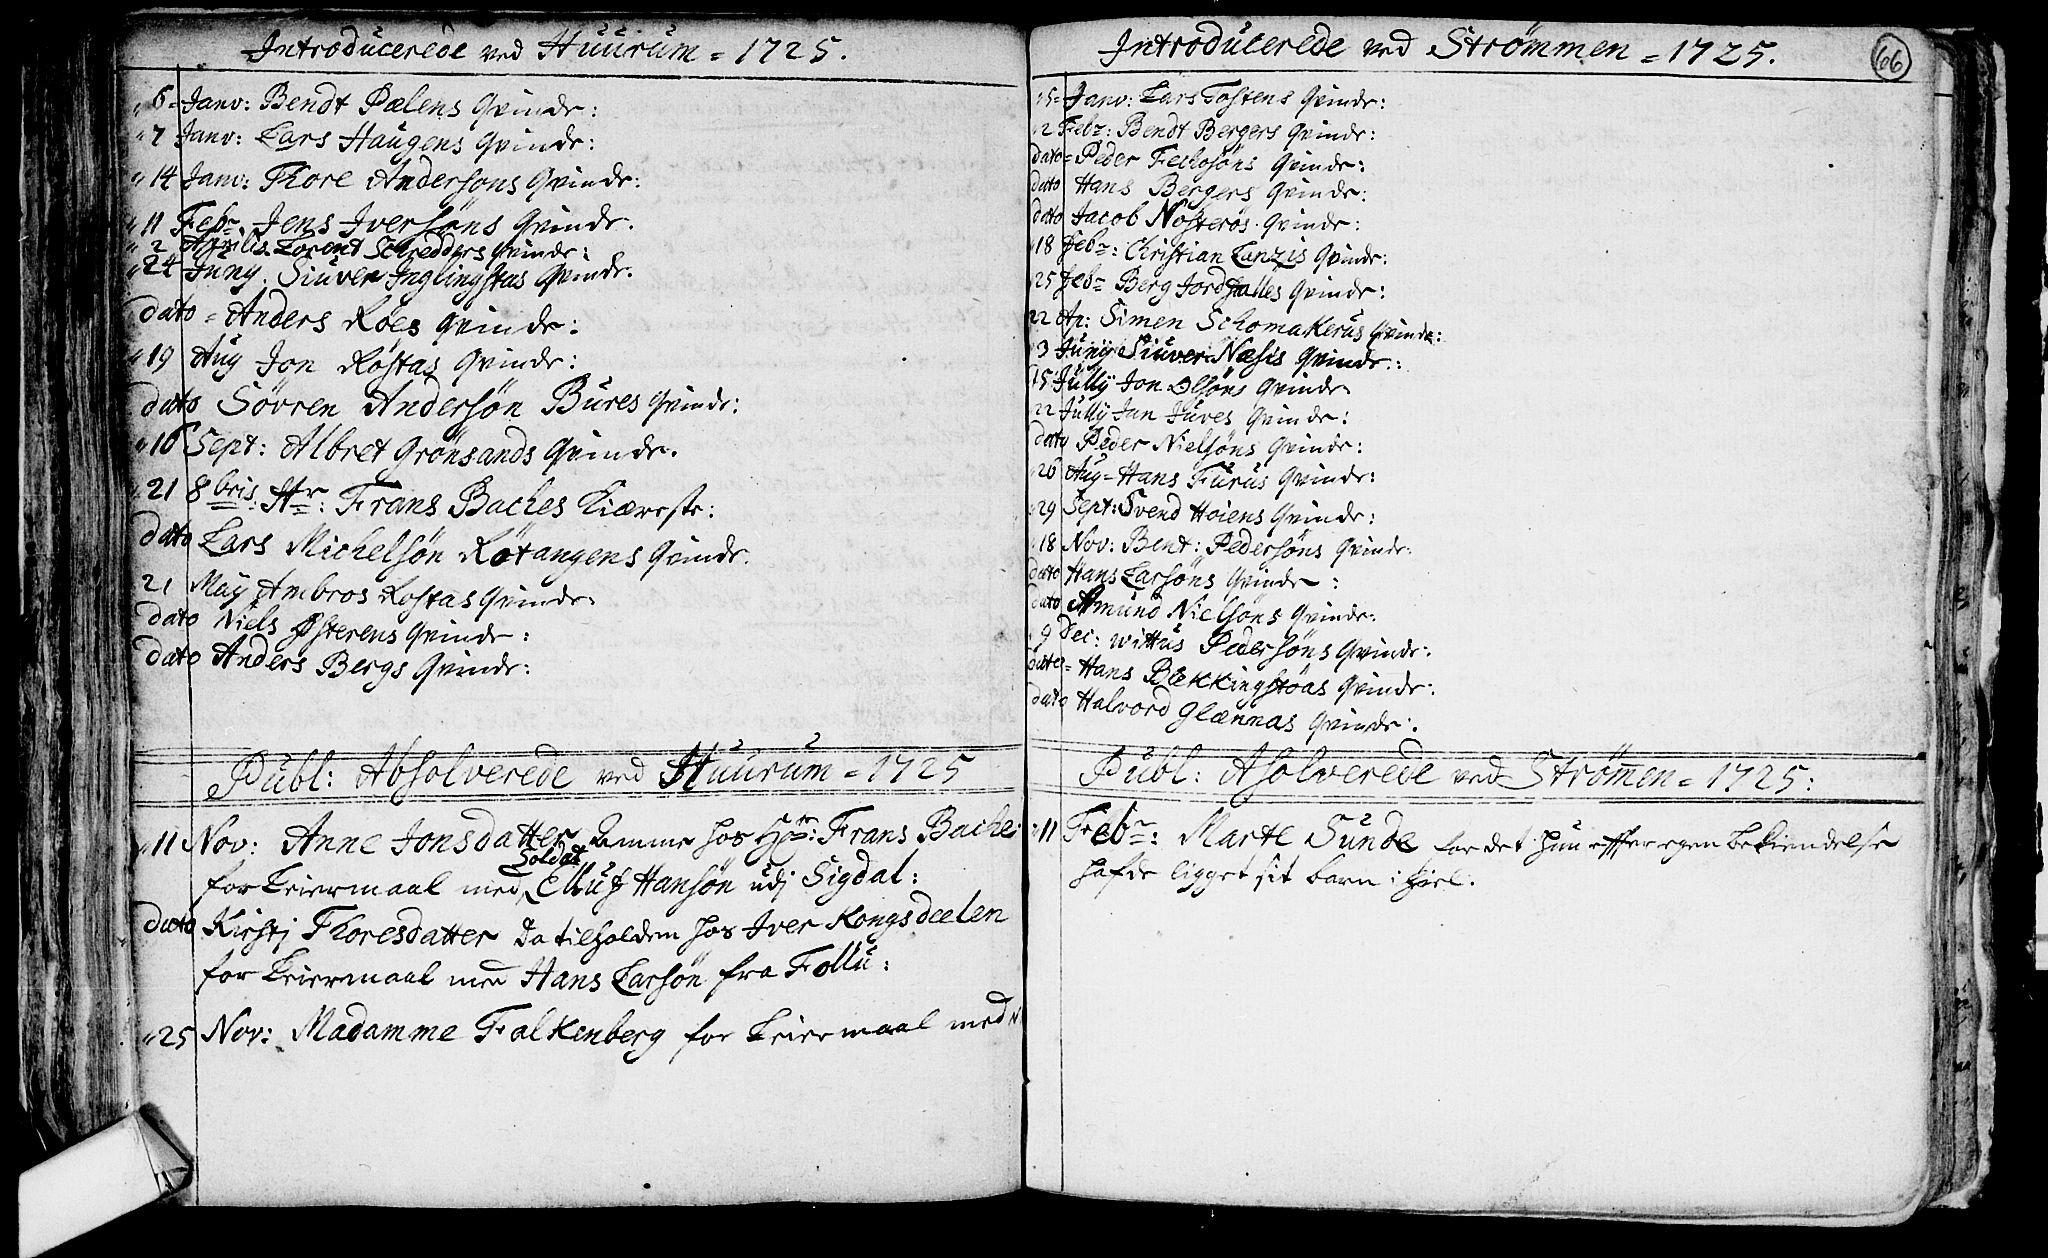 Introducerede ved Huurum = 1725.
6 = Janv: Bendt Dælens Qvinde:
7 Janv: Lars Haugens Qvinde:
14 Janv: Thore Andersons Qvinde:
11 Febr. Jens Iversöns Qvinde.
2 Aprilis Lorent Schredders Qvinde:
24 Juny. Siuver Inglingstas Qvinde.
dato = Anders Röes Qvinde:
19 Aug Jon Röstas Qvinde:
dato Sövren Andersön Bures Qvinde:
16 Sept: Albret Grönsands Qvinde.
21 8bris. Hr: Frans Baches Kiæreste:
dato Lars Michelsön Rötangens Qvinde.
21 May Ambros Rostas Qvinde
dato Niels Østerens Qvinde:
dato Anders Bergs Qvinde:
Publ: Absolverede ved Huurum = 1725
11 Nov: Anne Jonsdatter Amme hos Hr: Frans Bache
Soldat
for Leiermaal med Elluf Hansön udj Sigdal:
dato Kirstj Thoresdatter da tilholden hos Iver Kongsdeelen
for Leiermaal med Hans Larsön fra Follu:
25 Nov: Madamme Falkenberg for Leiermaal med N
Introducerede ved Strömmen = 1725.
66
15 = Janv: Lars Tostens Qvinde:
2 Febr: Bendt Bergers Qvinde:
dato = Peder Qvinde:
dato Hans Bergers Qvinde:
dato Jacob Nosterös Qvinde:
18 Febr: Christian Lanzis Qvinde:
25 Febr Berg Qvinde:
22 Ap: Simen Schomakerus Qvinde:
3 Juny Siuver Næsis Qvinde:
15 Jully Jon Olsöns Qvinde
22 Jully Jan Juves Qvinde:
dato Peder Nielsöns Qvinde:
26 Aug = Hans Furus Qvinde:
29 Sept: Svend Höiens Qvinde:
18 Nov: Bent: Pedersöns Qvinde:
dato Hans Larsöns Qvinde:
dato Amund Nielsöns Qvinde.
9 Dec: Wittus Pedersöns Qvinde:
dato = Hans Bekkingstöas Qvinde:
dato Halvord Glænnas Qvinde:
Publ: Asolverede ved Strömmen = 1725:
11 Febr: Marte Sunde for det hun effter egen Bekiendelse
hafde ligget sit barn i hiel: